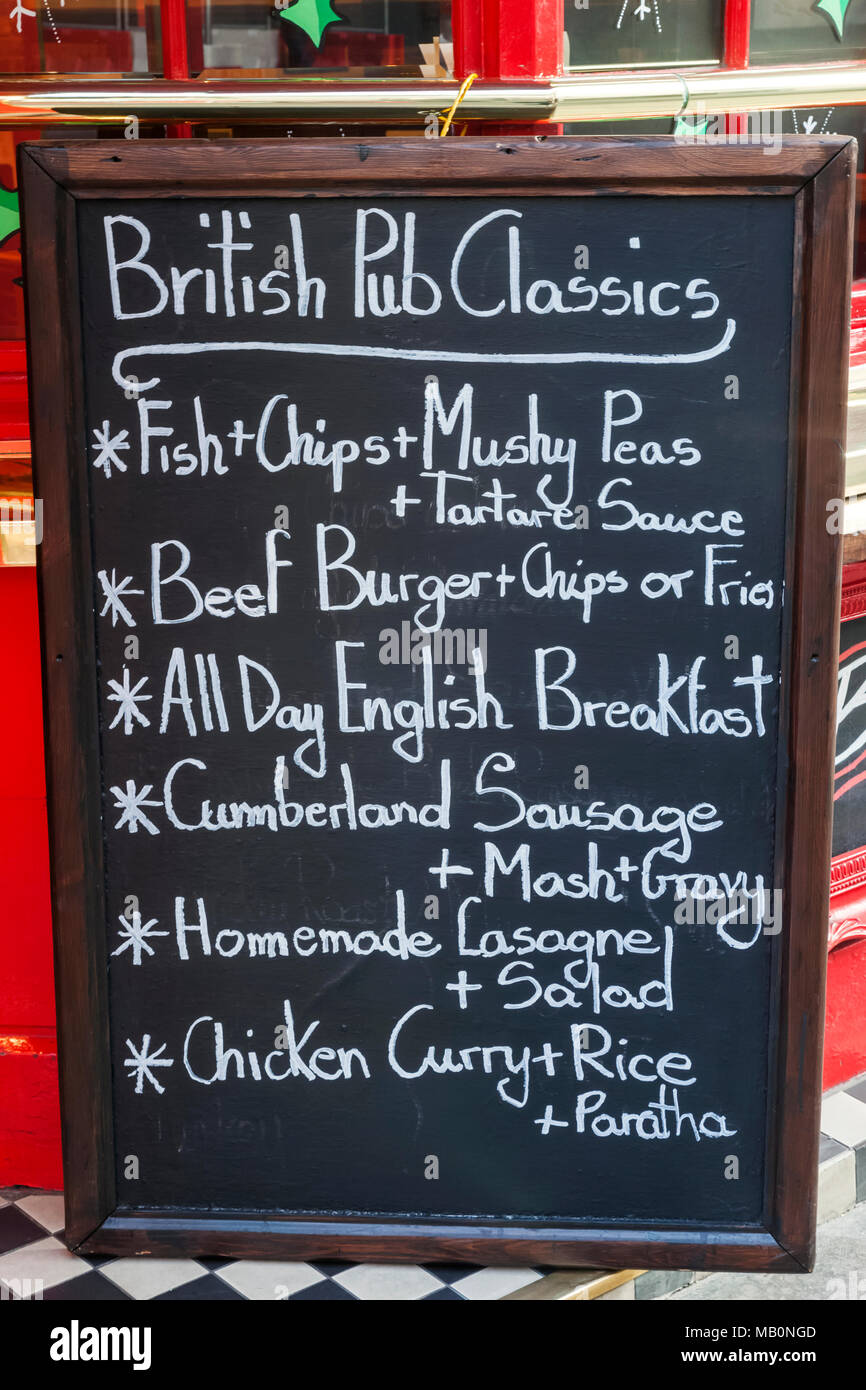 British Pub Classics
* Fish + Chips + Mushy Peas
+ Tartare Sauce
* Beef Burger + Chips or Fries
* All Day English Breakfast
* Cumberland Sausage
+ Mash + Gravy
* Homemade Lasagne
+ Salad
* Chicken Curry + Rice
+ Paratha
alamy
Image ID: MB0NGD
www.alamy.com